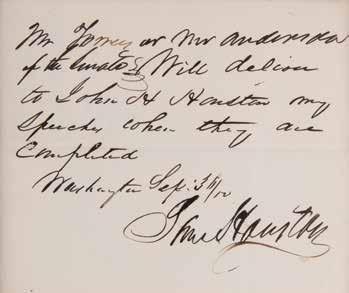 Mr Torrey or Mr Anderson
of the Senate Will deliver
to John H Houston my
Speeches when they are
Completed
Washington Sep: 3
Sam Houston